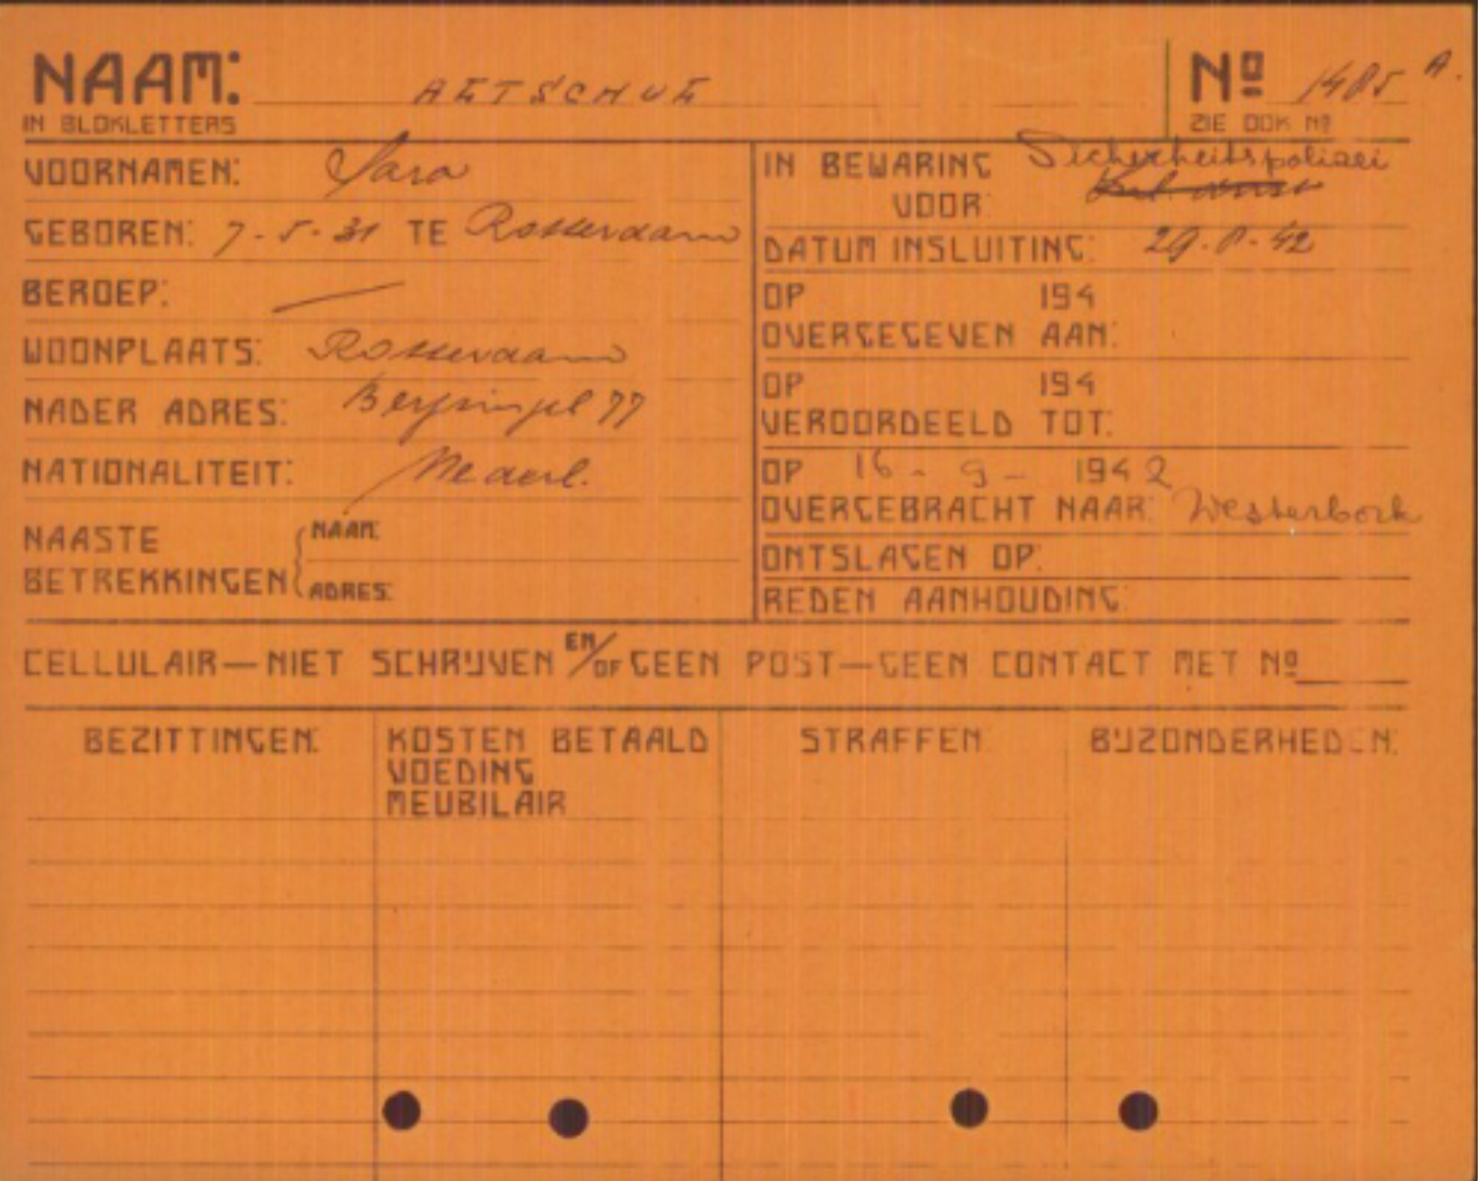 NAAM: AETSCHUE
IN BLOKLETTERS
Nº 1485 A.
ZIE OOK Nº
VOORNAMEN: Sara
GEBOREN: 7-5-31 TE Rotterdam
BEROEP: —
WOONPLAATS: Rotterdam
NADER ADRES: Bergsingel 77
NATIONALITEIT: Nederl.
NAASTE BETREKKINGEN
NAAM:
ADRES:
IN BEWARING VOOR: Sicherheitspolizei
DATUM INSLUITING: 29-8-42
OP 194
OVERGEGEVEN AAN:
OP 194
VEROORDEELD TOT:
OP 16-9-1942
OVERGEBRACHT NAAR: Westerbork
ONTSLAGEN OP:
REDEN AANHOUDING:
CELLULAIR—NIET SCHRIJVEN EN/OF GEEN POST—GEEN CONTACT MET Nº
BEZITTINGEN:
KOSTEN BETAALD
VOEDING
MEUBILAIR
STRAFFEN
BIJZONDERHEDEN: